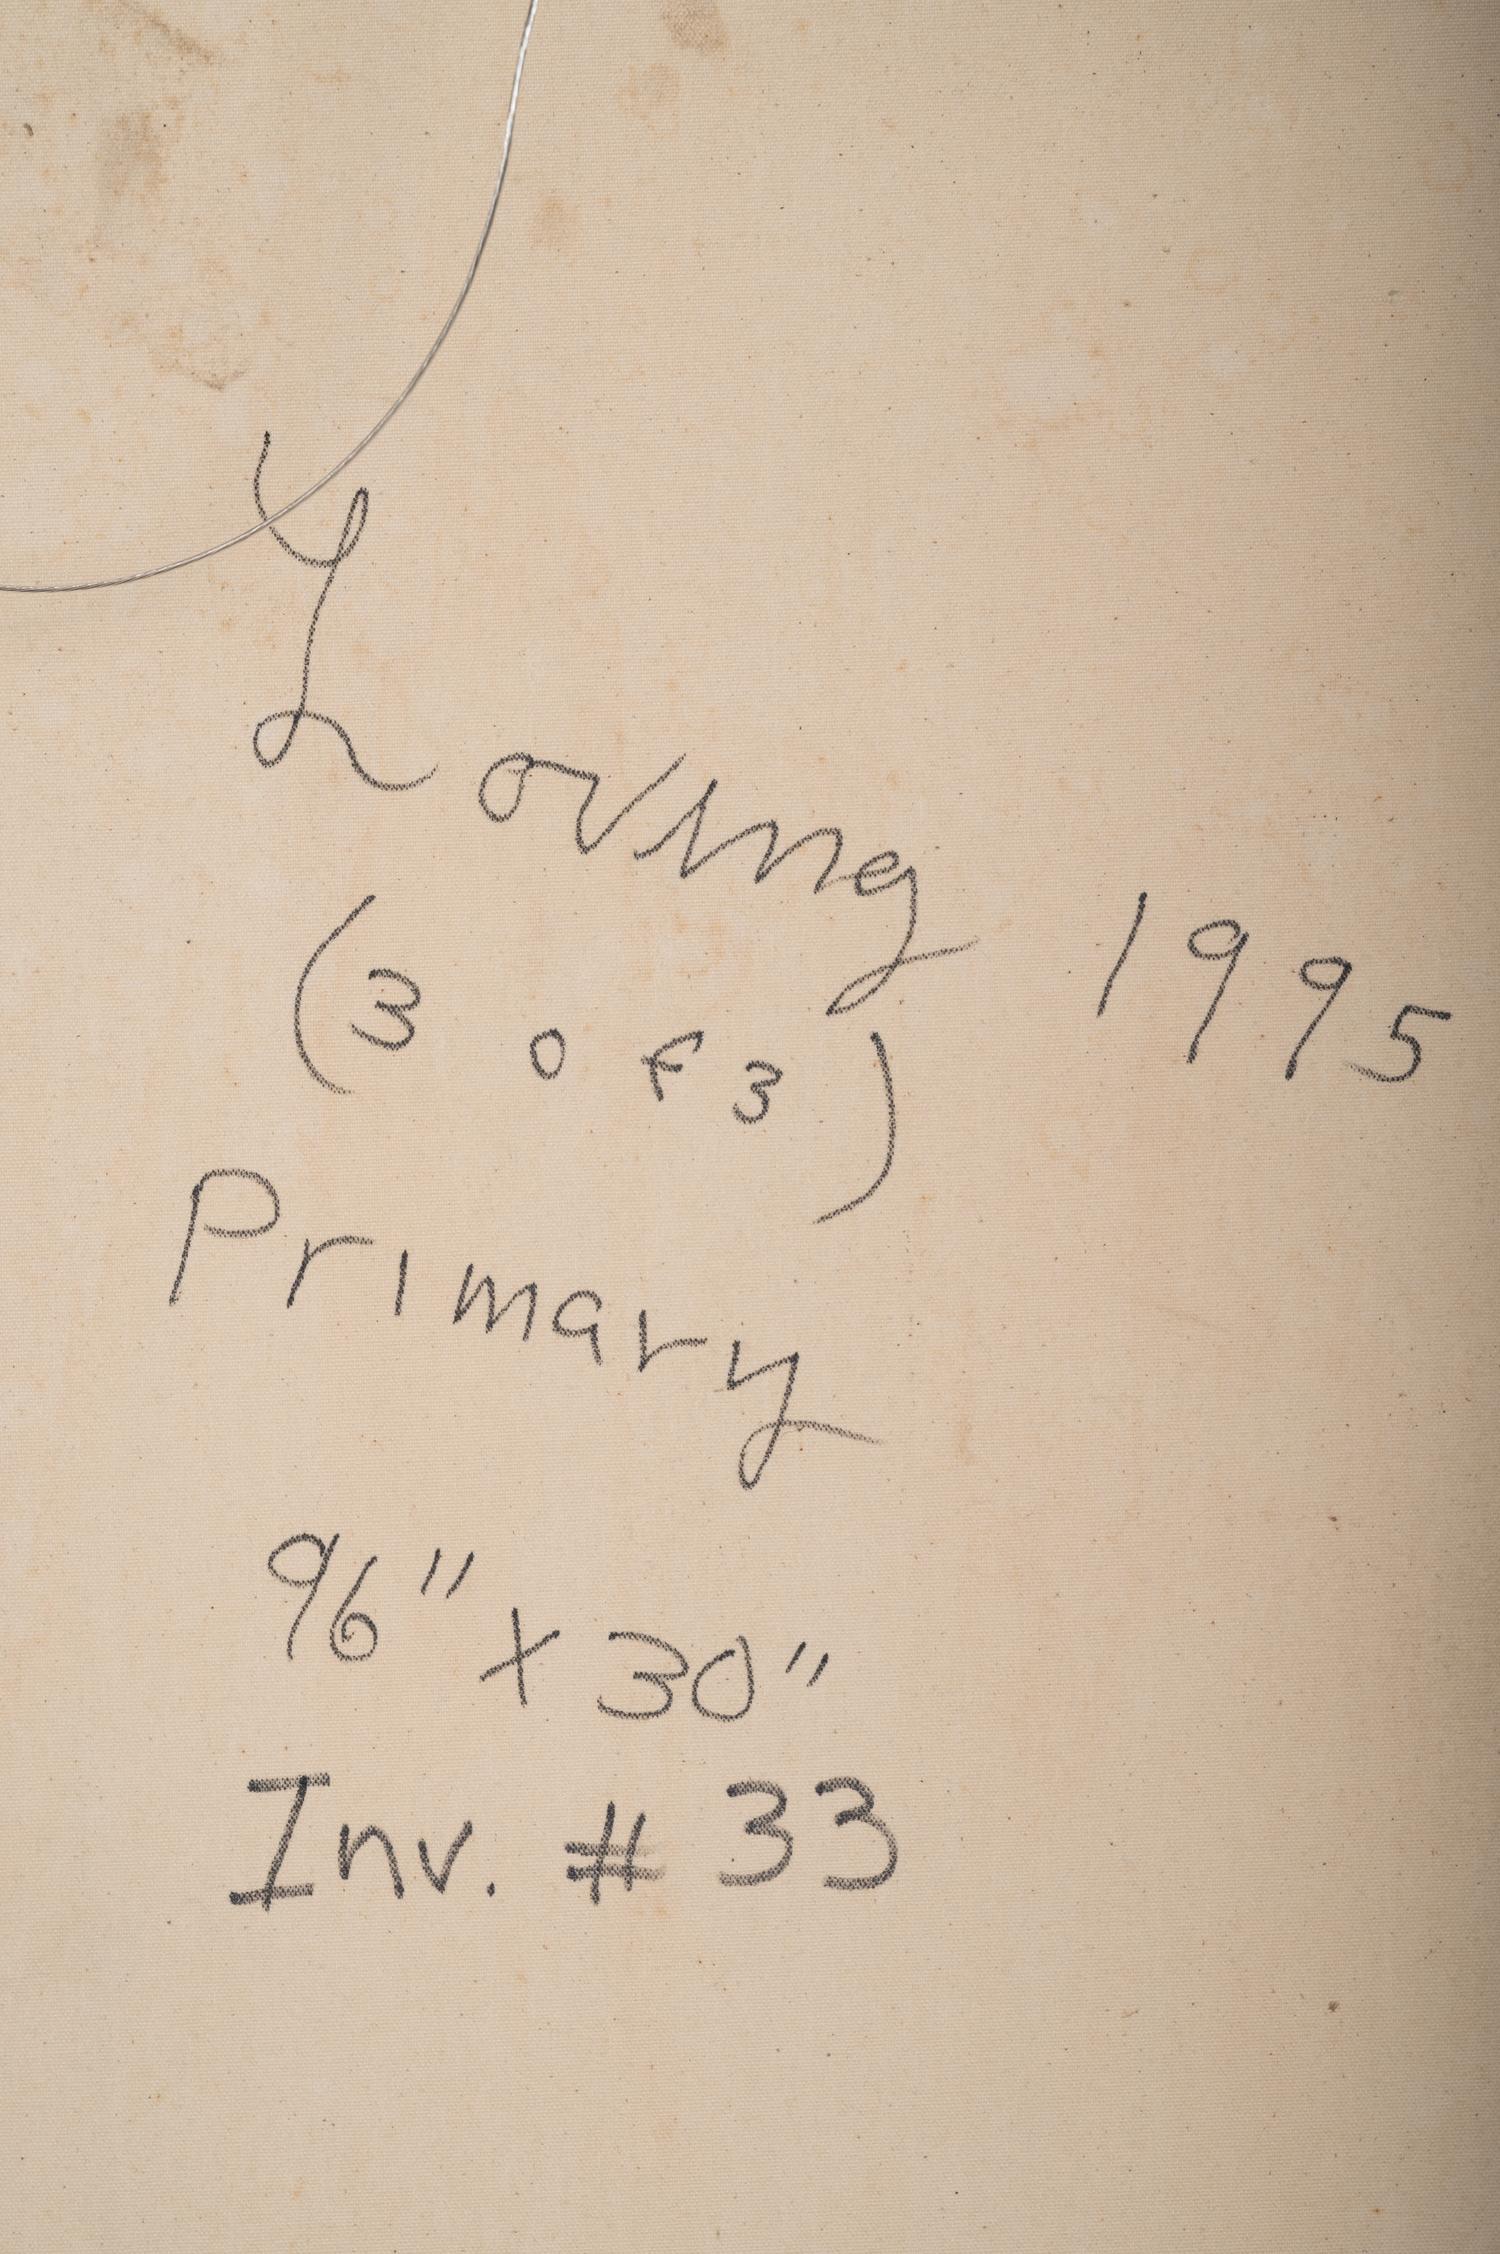 Loving 1995
(3 of 3)
Primary
96" x 30"
Inv. # 33